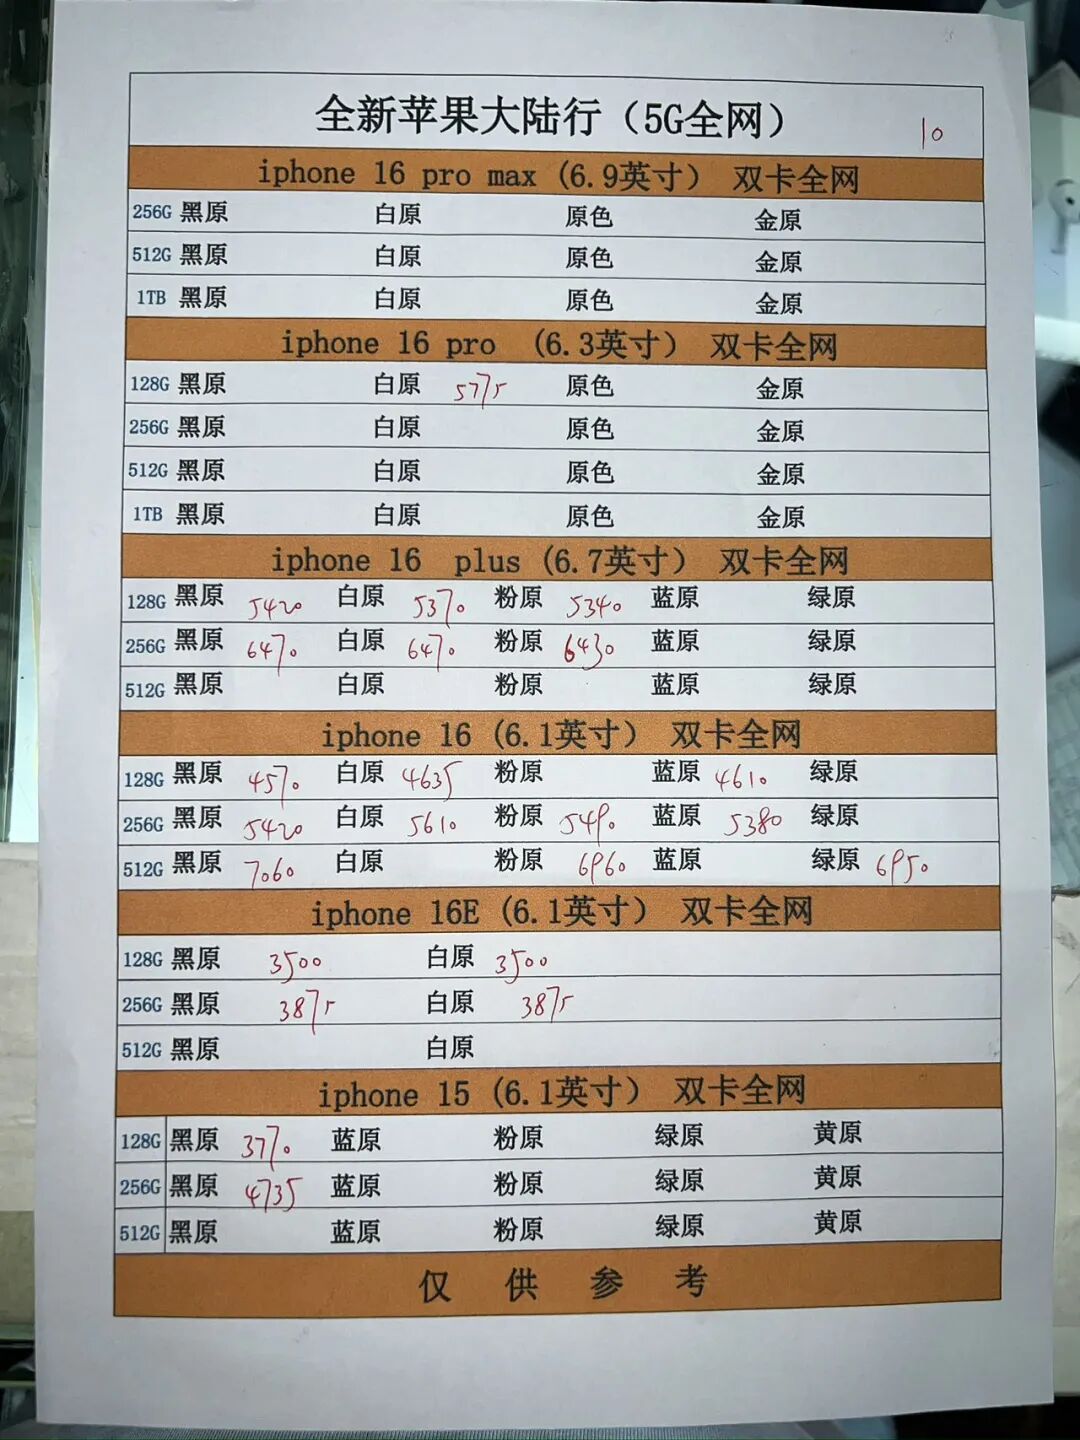 全新苹果大陆行（5G全网） 10
iphone 16 pro max (6.9英寸） 双卡全网
256G 黑原 白原 原色 金原
512G 黑原 白原 原色 金原
1TB 黑原 白原 原色 金原
iphone 16 pro （6.3英寸） 双卡全网
128G 黑原 白原 5775 原色 金原
256G 黑原 白原 原色 金原
512G 黑原 白原 原色 金原
1TB 黑原 白原 原色 金原
iphone 16 plus (6.7英寸） 双卡全网
128G 黑原 5420 白原 5370 粉原 5340 蓝原 绿原
256G 黑原 6470 白原 6470 粉原 6430 蓝原 绿原
512G 黑原 白原 粉原 蓝原 绿原
iphone 16 (6.1英寸） 双卡全网
128G 黑原 4570 白原 4635 粉原 蓝原 4610 绿原
256G 黑原 5420 白原 5610 粉原 5490 蓝原 5380 绿原
512G 黑原 7060 白原 粉原 6960 蓝原 绿原 6950
iphone 16E (6.1英寸） 双卡全网
128G 黑原 3500 白原 3500
256G 黑原 3875 白原 3875
512G 黑原 白原
iphone 15 (6.1英寸） 双卡全网
128G 黑原 3770 蓝原 粉原 绿原 黄原
256G 黑原 4735 蓝原 粉原 绿原 黄原
512G 黑原 蓝原 粉原 绿原 黄原
仅 供 参 考